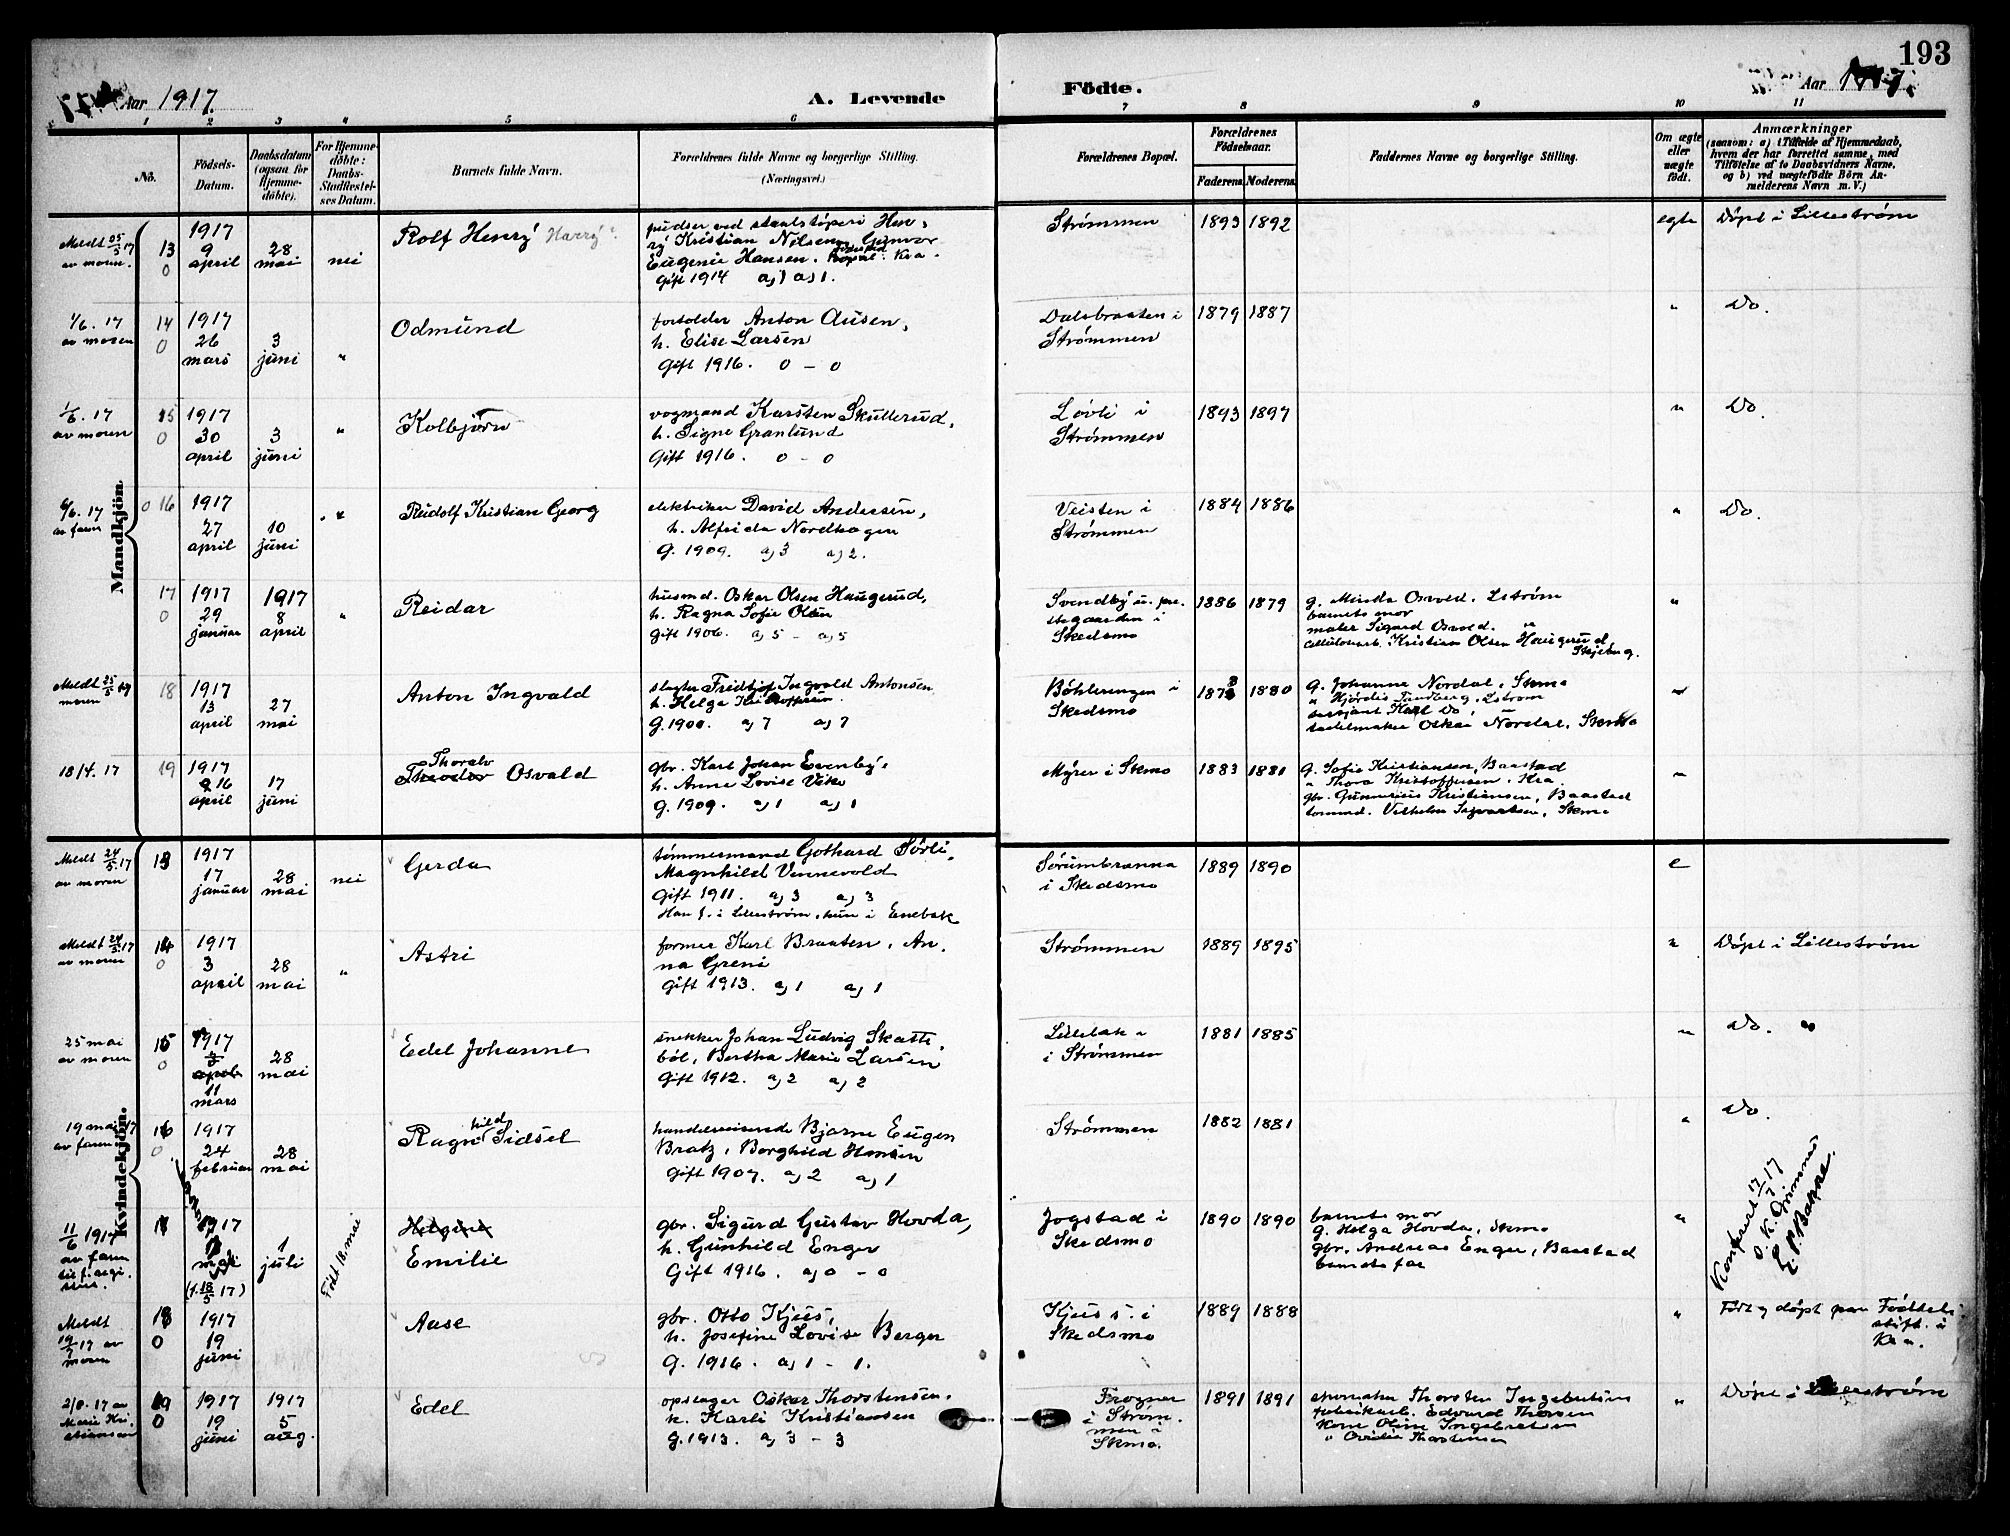 193
Aar 1917.
A. Levende
Födte.
Aar 1917.
1 2 3 4 5 6 7 8 9 10 11
No.
Födsels-Datum.
Daabsdatum (ogsaa for Hjemme-döbte).
For Hjemme-döbte: Daabs-Stadfæstel-ses Datum.
Barnets fulde Navn.
Forældrenes fulde Navne og borgerlige Stilling. (Næringsvei.)
Forældrenes Bopæl.
Forældrenes Födselsaar.
Faderens. Moderens.
Faddernes Navne og borgerlige Stilling.
Om ægte eller uægte födt.
Anmærkninger
(saasom: a) i Tilfælde af Hjemmedaab, hvem der har forrettet samme, med Tilföielse af to Daabsvidners Navne, og b) ved uægtefödte Börn Anmelderens Navn m. V.)
Mandkjön.
Meldt 25/5 17 av moren. 13 0 1917 9 april 28 mai nei
Rolf Henrÿ Harrÿ?
pudser ved staalstöperi Hen-
rÿ Kristian Nilsen, Gunvor
Eugenie Hansen. Kra.
Gift 1914 a) 1 a) 1.
Strømmen 1893 1892 egte Döpt i Lilleström
1/6. 17 av moren 14 0 1917 26 mars 3 juni "
Odmund
Anton Ausen,
h. Elise Larsen
Gift 1916. 0 – 0
Dalsbraaten i Strømmen 1879 1887 " Do.
1/6. 17 av moren 15 0 1917 30 april 3 juni "
Kolbjørn
vogmand Karsten Skullerud,
h. Signe Granlund
Gift 1916. 0 – 0
Løvli i Strømmen 1893 1897 " Do.
6/6. 17 av faren 0 16 1917 27 april 10 juni "
Rudolf Kristian Georg
elektriker David Andersen,
h. Alfrida Nordhagen
G. 1909. a) 3 a) 2.
Veisten i Strømmen 1884 1886 " Do.
17 0 1917 29 januar 1917 8 april "
Reidar
husmd. Oskar Olsen Haugerud,
h. Ragna Sofie Olsen
Gift 1906. a) 5 – a) 5
Svendbÿ u. pre-
stegaarden i
Skedsmo
1886 1879
g. Minda Osvold. Lström
barnets mor
maler Sigurd Osvold.
cellulosearb. Kristian Olsen Haugerud, Skjeberg.
"
Meldt 25/5 17 moren 18 1917 13 april 27 mai
Anton Ingvald
slagter Fridtjof Ingvald Antonsen,
h. Helga Kristoffersen.
G. 1900. a) 7 a) 7
Böhlerengen i Skedsmo 1878 1880
G. Johanne Nordal, Skmo
" Hjördis Tandberg, Lström
sersjant Karl Do,
sadelmaker Oskar Nordal, Skmo
"
18/4. 17 19 1917 16 april 17 juni
Thoralv
Theodor Osvald
gbr. Karl Johan Evenbÿ,
h. Anne Lovise Vike
G. 1909. a) 1 a) 1
Mÿrer i Skmo 1883 1881
G. Sofie Kristiansen, Baastad
" Thora Kristoffersen, Kra
gbr. Gunnerius Kristiansen, Baastad
tommd. Vilhelm Sigvartsen, Skmo
"
Kvindekjön.
Meldt 24/5. 17 av moren 13 1917 17 januar 28 mai nei
Gerda
tömmermand Gothard Sörli,
Magnhild Vennevold
Gift 1911. a) 3 a) 3
Han f. i Lilleström, hun i Enebak
Sörumbranna i Skedsmo 1889 1890 e
Meldt 24/5. 17 av moren 14 0 1917 3 april 28 mai "
Astri
former Karl Braaten, An-
na Greni
Gift 1913. a) 1 a) 1
Strømmen 1889 1895 " Döpt i Lilleström
25 mai av moren 15 0 1917 3 april 11 mars 28 mai
Edel Johanne
snekker Johan Ludvig Skatte-
böl, Bertha Marie Larsen
Gift 1912. a) 2 a) 2
i Strømmen 1881 1885 " Do. "
19 mai 17 av faren 16 0 1917 24 februar 28 mai
Ragnhild Sidsel
handelsreisende Bjarne Eugen
Bratz, Borghild Hansen
Gift 1907. a) 2 a) 1
Strømmen 1882 1881 " Do.
11/6 1917 av faren 17 1917 mai (f. 18/5 17) 1 juli Födt 18. mai
Helgine
Emilie
gbr. Sigurd Gustav Hovda,
h. Gunhild Enger
Gift 1916. a) 0 – 0
Jogstad i Skedsmo 1890 1890
barnets mor
G. Helga Hovda, Skmo
gbr. Andreas Enger, Baastad
barnets far
"
Konferert 17/7 17
O. K. Grimnes
E. P. Bakke.
Meldt 19/7 17 av moren 18 0 1917 19 juni
Aase
gbr. Otto Kjus,
h. Josefine Lovise Berger
G. 1916. a) 1 – 1.
Kjus s. i Skedsmo 1889 1888 "
Födt og döpt paa Födsels-
stift. i
Kra.
2/8. 17 av Marie Kristiansen 19 0 1917 19 juni 1917 5 aug.
Edel
opslager Oskar Thorstensen,
h. Karli Kristiansen
G. 1913. a) 3 – 3
Frogner
i Ström-
men i
Skmo.
1891 1891
skomaker Thorsten Ingebretsen
fabrikarb. Edvard Thorsen
Kone Oline Ingebretsen
" Ovidia Thorstensen
" Döpt i Lilleström